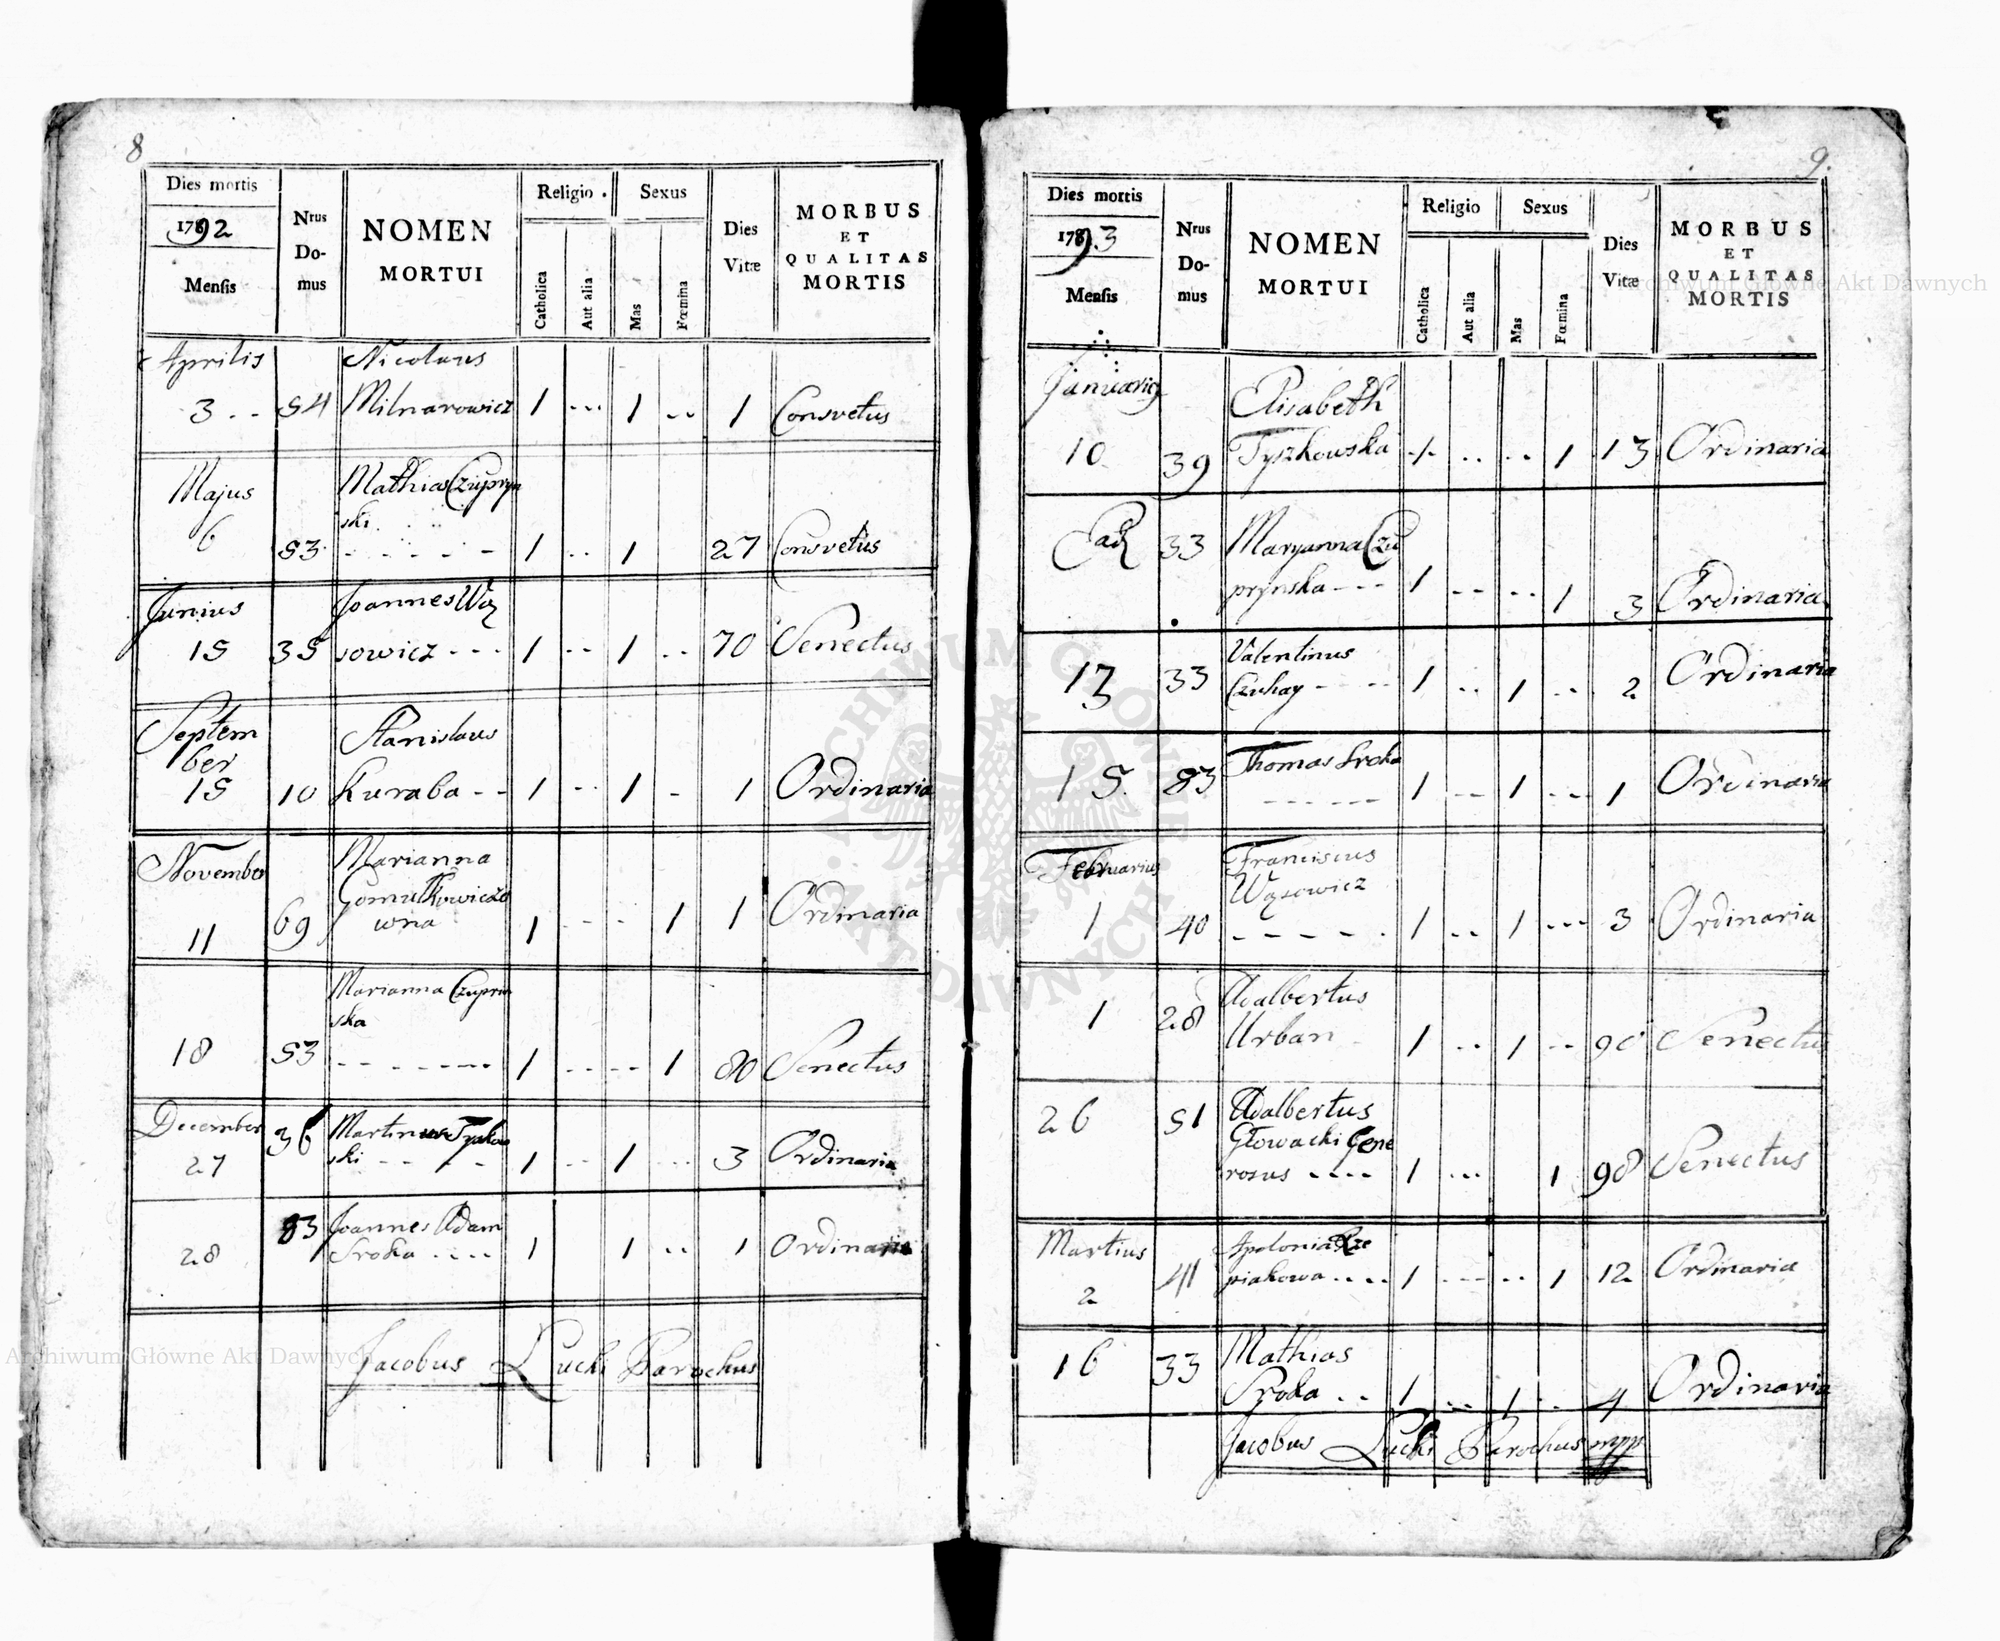 8
Dies mortis
1792
Mensis
Nrus
Do-
mus
NOMEN
MORTUI
Religio.
Sexus
Catholica
Aut alia
Mas
Fœmina
Dies
Vitæ
MORBUS
ET
QUALITAS
MORTIS
Aprilis
Nicolaus
3 .. 54 Milnarowicz 1 ... 1 .. 1 Consvetus
Majus
Mathias Czupryn
ski
6 53 - - - - - 1 .. 1 27 Consvetus
Junius
Joannes Wą
15 35 sowicz - - - 1 -- 1 .. 70 Senectus
Septem
ber
Stanislaus
15 10 Kuraba - - 1 -- 1 - 1 Ordinaria
November
Marianna
Gomułkowiczo
wna
11 69 1 - - - 1 1 Ordinaria
Marianna Czuprin
ska
18 53 - - - - - - - 1 - - - - 1 80 Senectus
December
27 36 Martinus
ski - - - - 1 -- 1 ... 3 Ordinaria
83 Joannes Adam
28 Sroka .... 1 1 .. 1 Ordinaria
Jacobus Lucki Parochus
9.
Dies mortis
1793
Mensis
Nrus
Do-
mus
NOMEN
MORTUI
Religio
Sexus
Catholica
Aut alia
Mas
Fœmina
Dies
Vitæ
MORBUS
ET
QUALITAS
MORTIS
Januarij
Elisabeth
10 39 Tyszkowska 1 .. .. 1 13 Ordinaria
33 Maryanna Czu
prynska - - - 1 -- -- 1 3 Ordinaria
Valentinus
13 33 Czuhay - - - - 1 .. 1 .. 2 Ordinaria
Thomas Sroka
15. 83 - - - - - - 1 -- 1 ... 1 Ordinaria
Februarius
Franciscus
Wąsowicz
1 40 - - - - - 1 .. 1 --- 3 Ordinaria
Adalbertus
1 28 Urban 1 .. 1 -- 90 Senectus
26 51 Adalbertus
Głowacki Gene
rosus .... 1 ... 1 98 Senectus
Martius
Apolonia Rze
2 41 piakowa .... 1 --- .. 1 12 Ordinaria
Mathias
16 33 Sroka .. 1 .. 1 .. 4 Ordinaria
Jacobus Lucki Parochus mpp
Archiwum Główne Akt Dawnych
Archiwum Główne Akt Dawnych
ARCHIWUM GŁÓWNE AKT DAWNYCH